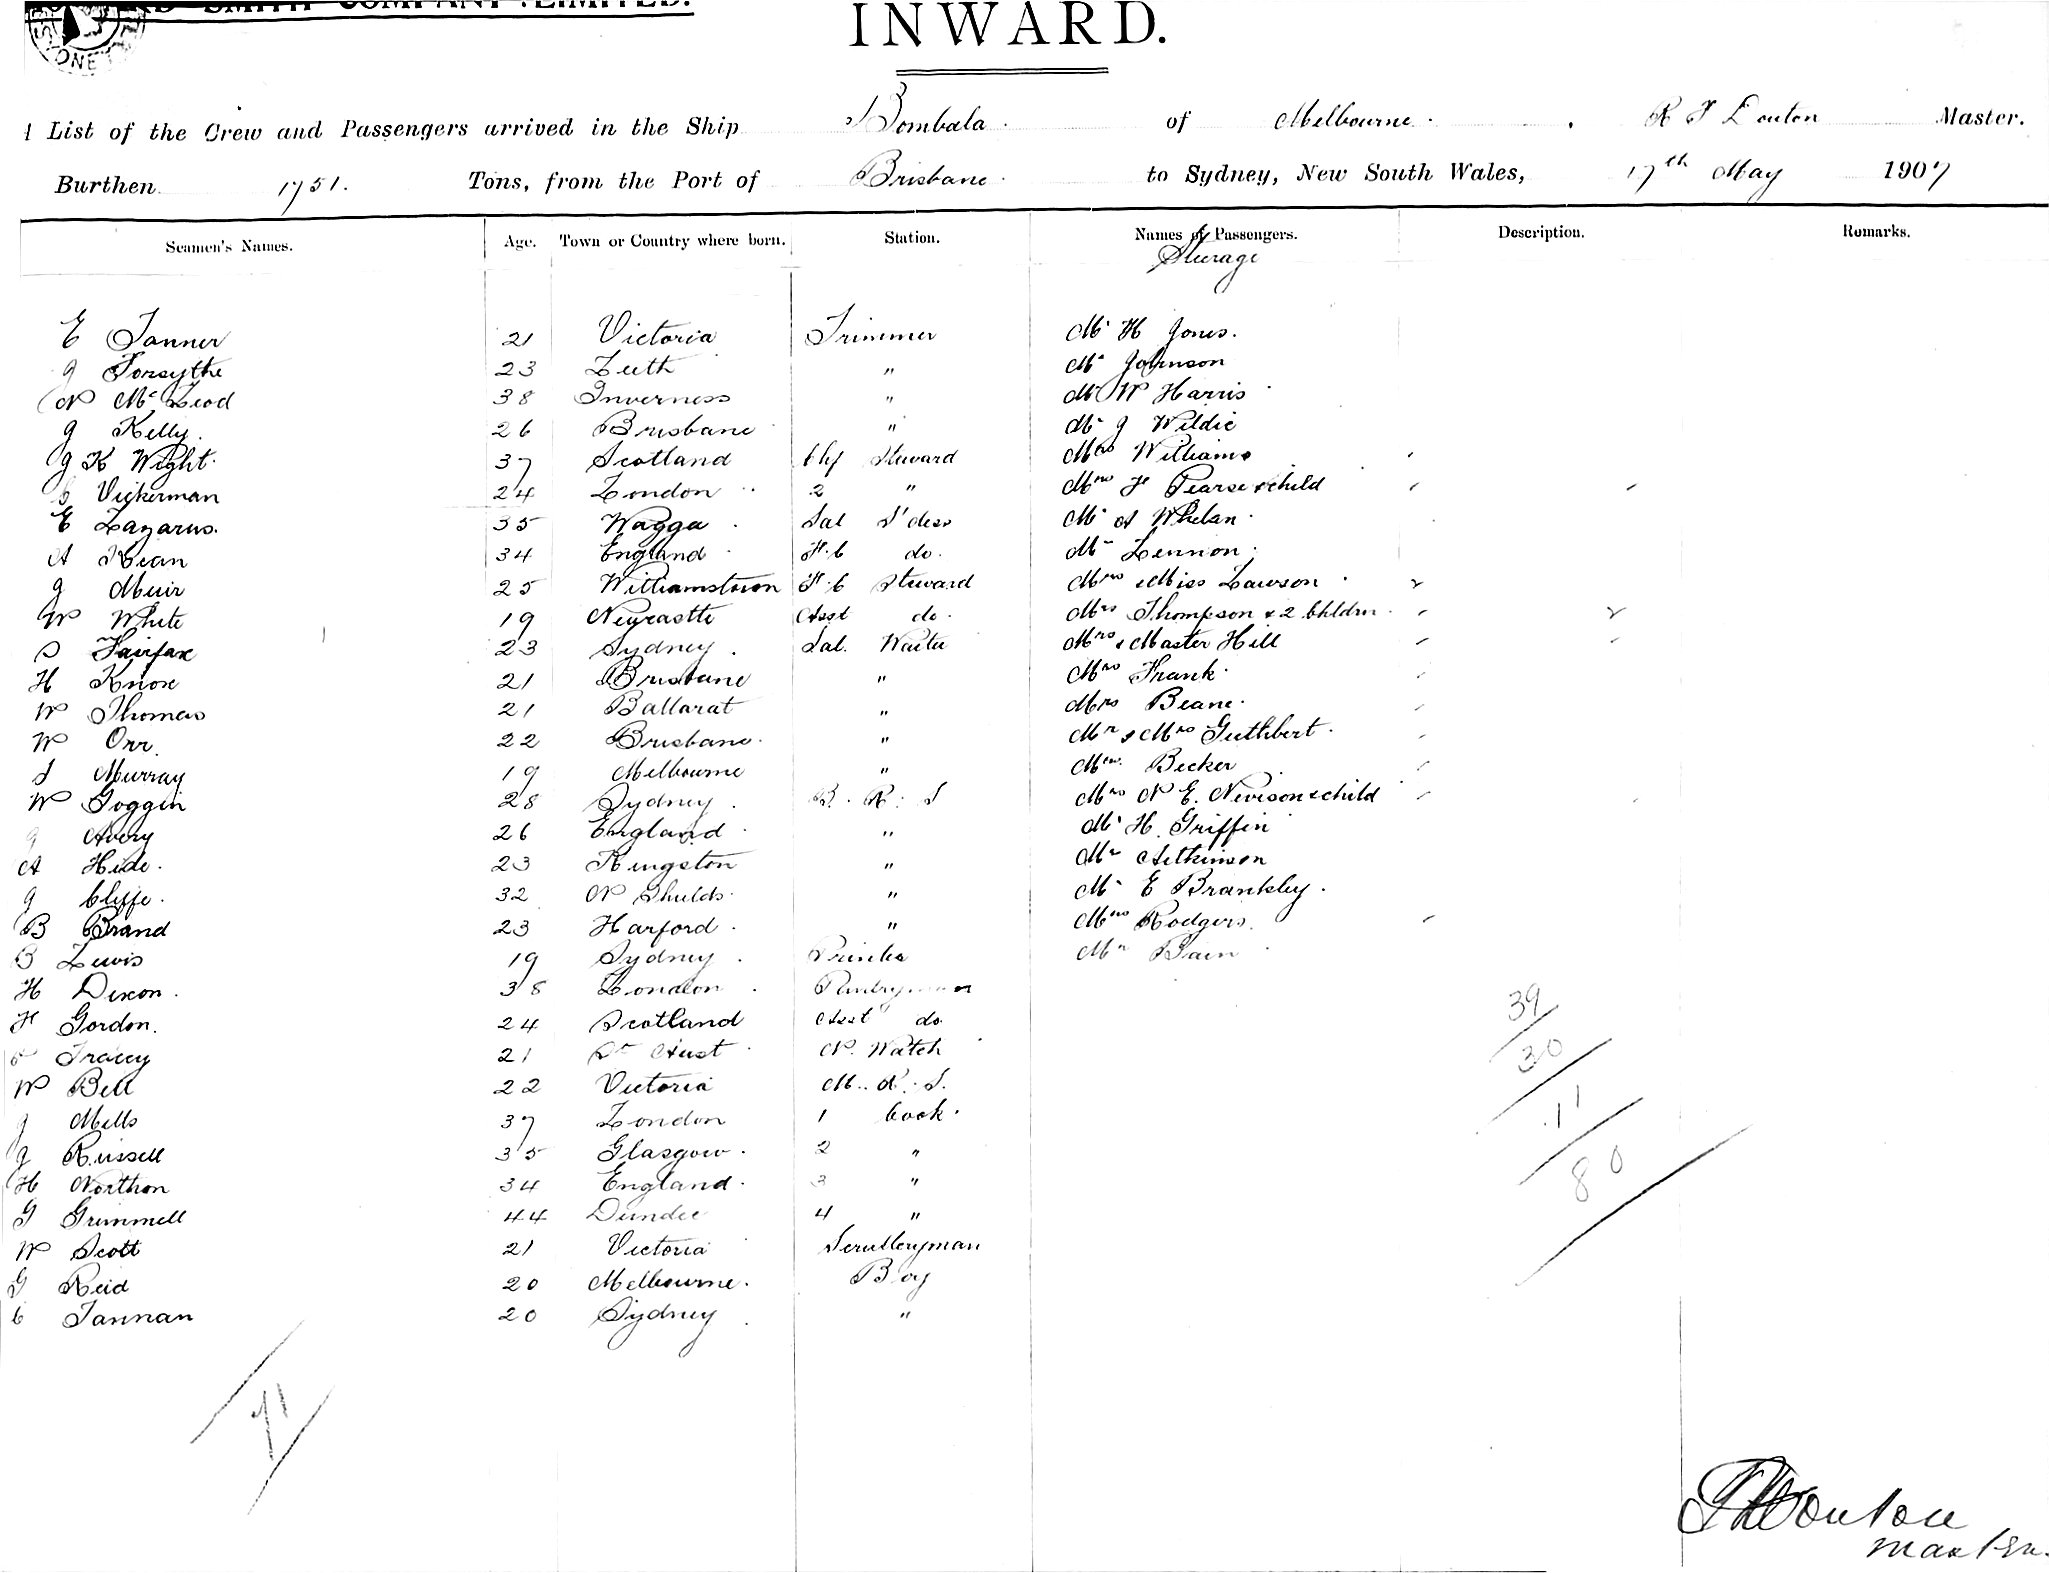 SMITH COMPANY LIMITED.
INWARD.
List of the Crew and Passengers arrived in the Ship Bombala. of Melbourne. R F Louton Master.
Burthen 1751. Tons, from the Port of Brisbane. to Sydney, New South Wales, 17th May 1907
Seamen's Names. Age. Town or Country where born. Station. Names of Passengers. Description. Remarks.
Steerage
E Tanner 21 Victoria Trimmer Mr H Jones.
J Forsythe 23 Leith " Mr Johnson
N McLeod 38 Inverness " Mr W Harris
J Kelly. 26 Brisbane " Mr J Wildie
J K Wight. 37 Scotland Chf Steward Mrs Williams
Vickerman 24 London 2 " Mrs F Pearse & child
E Lazarus. 35 Wagga Sal S'dess Mr A Whelan
A Kean 34 England F.C do. Mr Lennon
J Muir 25 Williamstown F.C Steward Mrs & Miss Lawson
W White 19 Newcastle Asst do. Mrs Thompson & 2 Chldrn
S Fairfax 23 Sydney. Sal. Waiter Mrs & Master Hill
H Knox 21 Brisbane " Mrs Frank
W Thomas 21 Ballarat " Mrs Beane.
W Orr. 22 Brisbane. " Mr & Mrs Guthbert.
S Murray 19 Melbourne " Mrs. Becker
W Goggin 28 Sydney. B. R. S Mrs N E. Nevison & child
J Avery 26 England " Mr H. Griffin
A Hide. 23 Kingston " Mr Aitkinson
J Cliffe. 32 N Shields. " Mr E Brankley.
B Brand 23 Harford " Mrs Rodgers.
B Lewis 19 Sydney. Printer Mr Bain
H Dixon. 38 London Pantryman
H Gordon. 24 Scotland Asst do 39
Tracey 21 St Aust N. Watch 30
W Bell 22 Victoria M. R. S. 11
J Mills 37 London 1 Cook. 80
J Russell 35 Glasgow. 2 "
H Northon 34 England. 3 "
G Grimmell 44 Dundee 4 "
W Scott 21 Victoria Sculleryman
G Reid 20 Melbourne. Boy
C Tannan 20 Sydney "
71
Louton
Master.